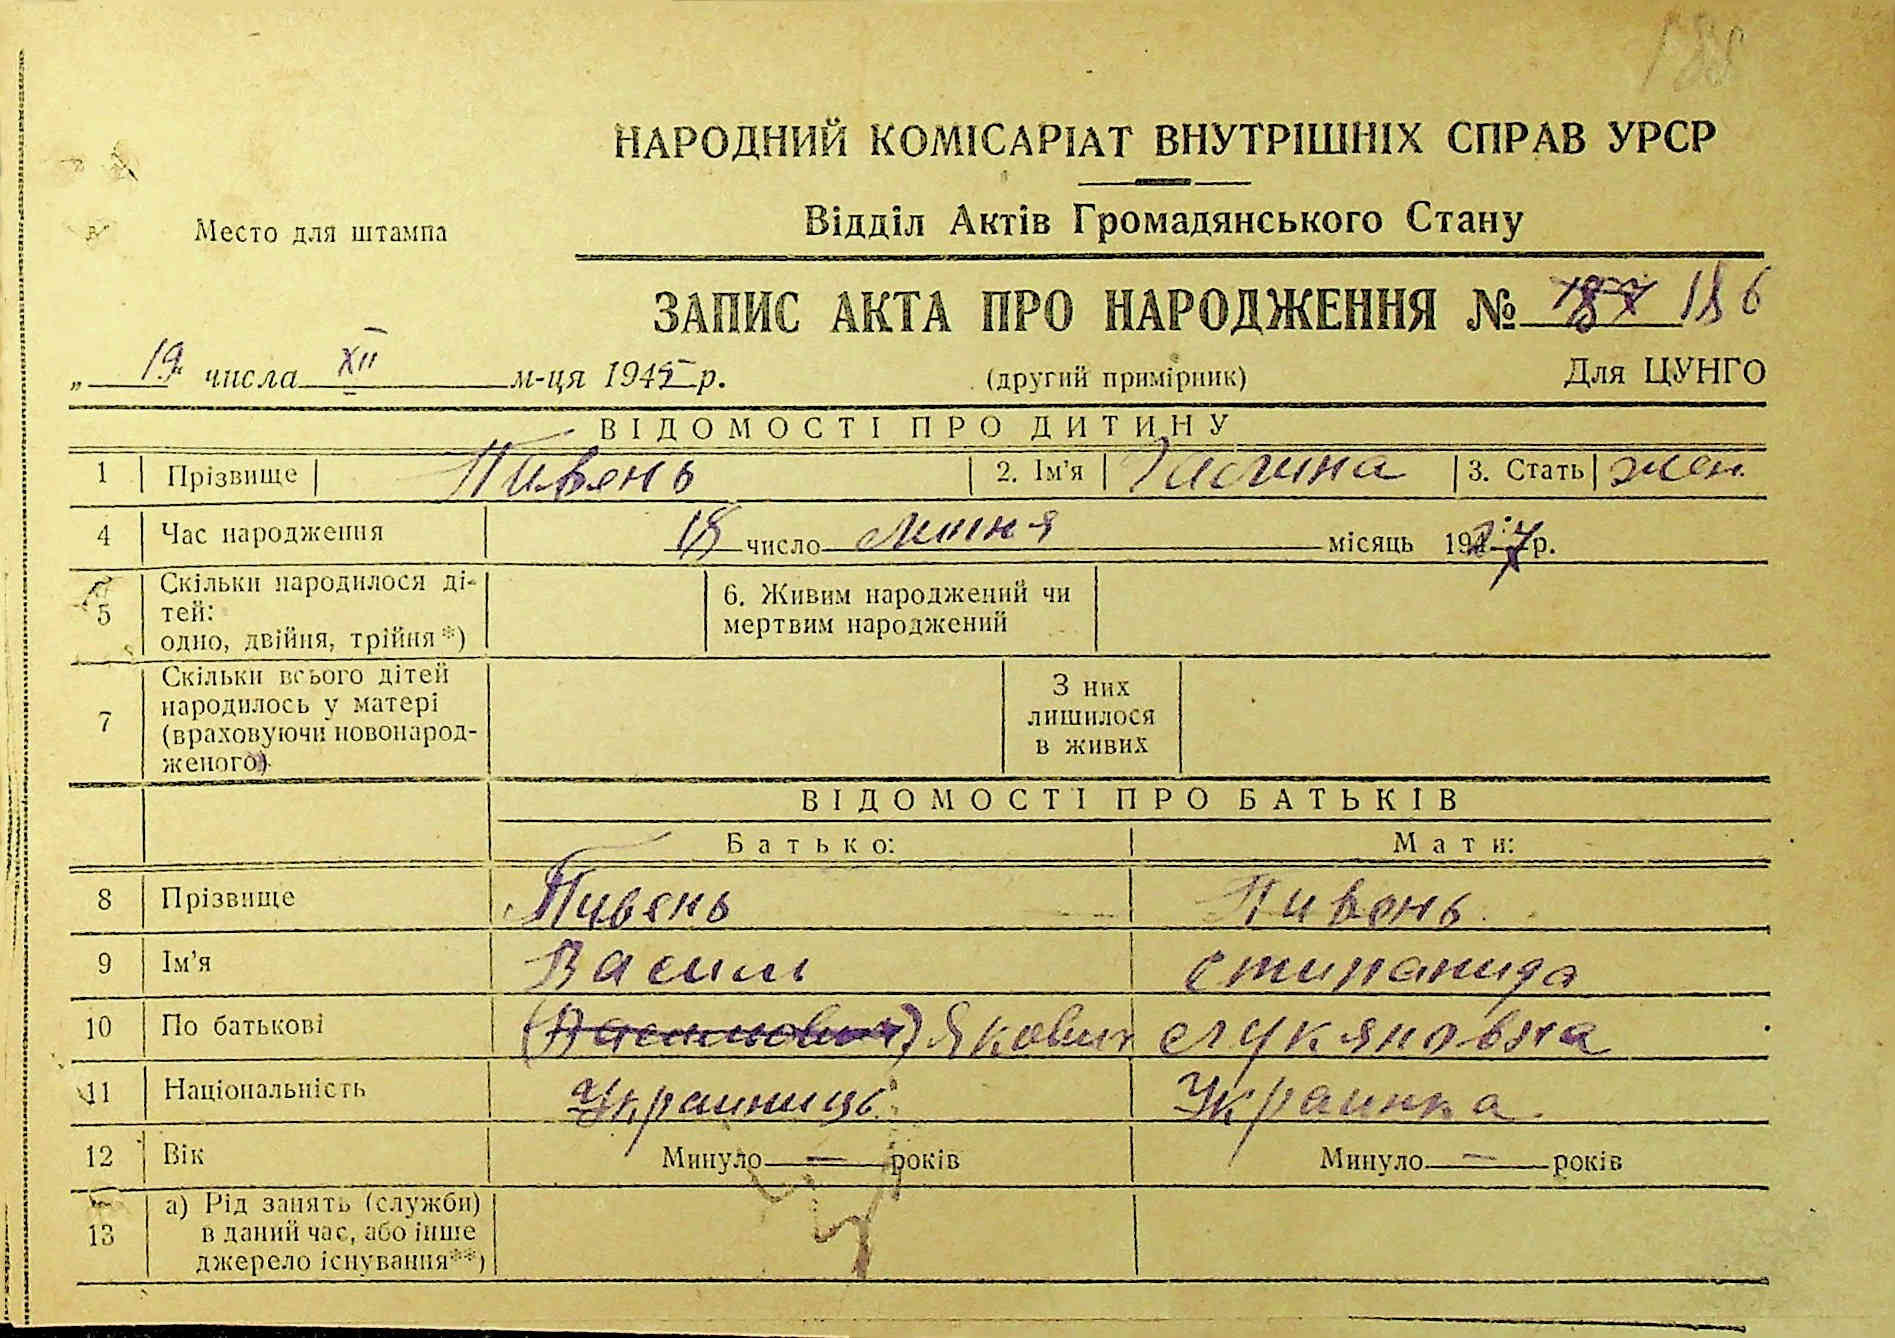 188
НАРОДНИЙ КОМІСАРІАТ ВНУТРІШНІХ СПРАВ УРСР
Место для штампа
Відділ Актів Громадянського Стану
ЗАПИС АКТА ПРО НАРОДЖЕННЯ № 187 186
„ 19 числа XII м-ця 1945 р. (другий примірник) Для ЦУНГО
ВІДОМОСТІ ПРО ДИТИНУ
1 Прізвище Пивень 2. Ім'я Галина 3. Стать жен.
4 Час народження 18 число липня місяць 1927 р.
5 Скільки народилося ді-
тей:
одно, двійня, трійня*)
6. Живим народжений чи
мертвим народжений
7 Скільки всього дітей
народилось у матері
(враховуючи новонарод-
женого)
З них
лишилося
в живих
ВІДОМОСТІ ПРО БАТЬКІВ
Батько: Мати:
8 Прізвище Пивень Пивень
9 Ім'я Васили Стипанида
10 По батькові (Васильович) Якович Лукяновна
11 Національність Украиниць Украинка
12 Вік Минуло — років Минуло — років
13 а) Рід занять (служби)
в даний час, або інше
джерело існування**)